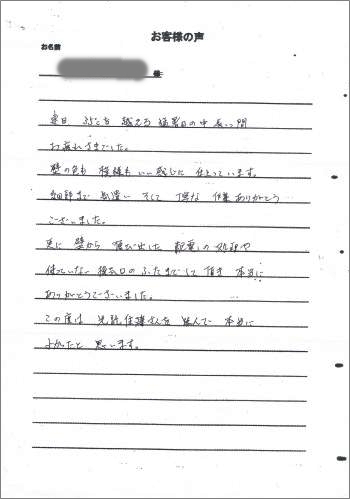 お客様の声
お名前
様
連日 35℃を越える猛暑日の中 長い間
お疲れさまでした。
壁の色も 模様も いい感じに 仕上っています。
細部まで 気遣い そして 丁寧な 作業 ありがとう
ございました。
更に 壁から 飛び出した 配電の処理や
使っていない 換気口の ふたまでして頂き 本当に
ありがとうございました。
この度は 住建さんを 選んで 本当に
よかったと 思います。